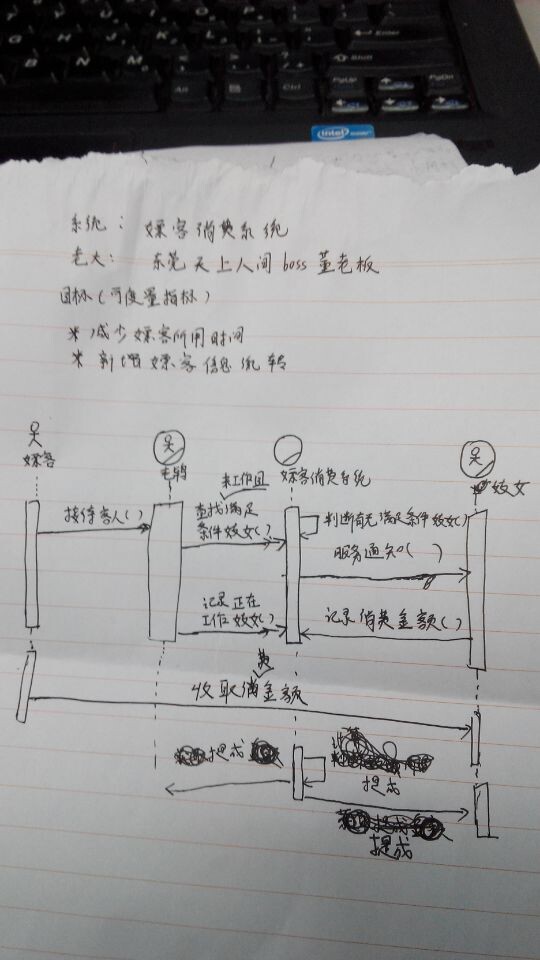 Enter
Shift
Alt
Ctrl
PgUp
PgDn
intel
系统：嫖客消费系统
老大：东莞天上人间boss董老板
目标(可度量指标)
* 减少嫖客所用时间
* 新增嫖客信息流转
嫖客
老鸨
嫖客消费系统
妓女
接待客人()
未工作且
查找满足
条件妓女()
判断有无满足条件妓女()
服务通知()
记录正在
工作妓女()
记录消费金额()
费
收取消金额
提成
计算
提成
提成